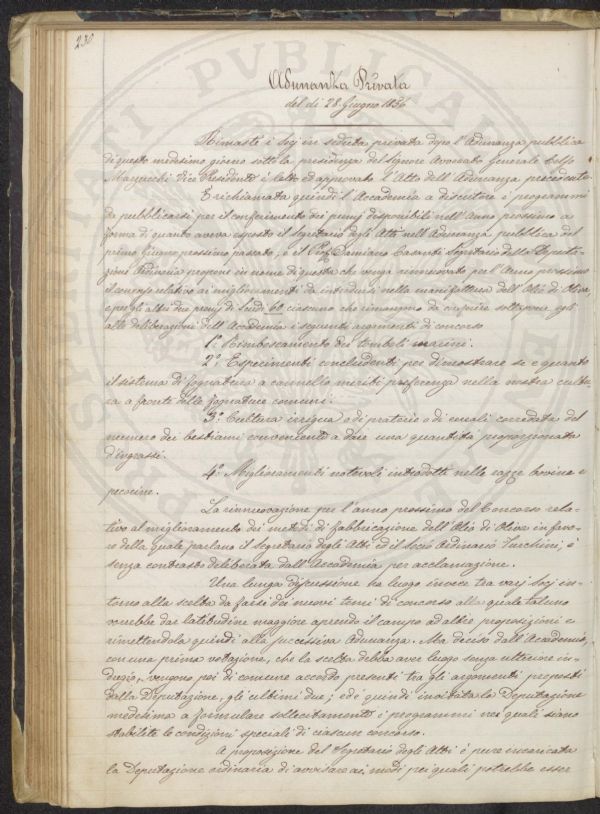 230
Adunanza Privata
del dì 28 Giugno 1856
Rimaste i Socj in seduta privata dopo l'Adunanza pubblica
di questo medesimo giorno sotto la presidenza del Signore Avvocato Generale
Marzucchi Vice Presidente è letto ed approvato l'Atto dell'Adunanza precedente.
E richiamata quindi l'Accademia a discutere i programmi
da pubblicarsi per il conferimento dei premj disponibili nell'Anno prossimo a
forma di quanto aveva esposto il Segretario degli Atti nell'Adunanza pubblica del
primo Giugno prossimo passato; e il Prof. Damiano Casanti Segretario della Deputa-
zione Ordinaria propone in nome di questa che venga rinnuovato per l'Anno prossimo
il concorso relativo ai miglioramenti da introdursi nella manifattura dell'Olio di Oliva,
e per gli altri due premj di Scudi 60 ciascuno che rimangono da conferire sottopone egli
alle deliberazioni dell'Accademia i seguenti argomenti di concorso
1.° Rimboscamento dei Tomboli marini.
2.° Esperimenti concludenti per dimostrare se e quanto
il sistema di fognatura a cannello meriti preferenza nella nostra cultu-
ra a fronte delle fognature comuni.
3.° Cultura irrigua o di praterie o di cereali corredata del
numero dei bestiami conveniente a dare una quantità proporzionata
d'ingrassi.
4.° Miglioramenti notevoli introdotti nelle razze bovine e
pecorine.
La rinnuovazione per l'anno prossimo del Concorso rela-
tivo al miglioramento dei metodi di fabbricazione dell'Olio di Oliva in favo-
re della quale parlano il Segretario degli Atti ed il Socio Ordinario Turchini, è
senza contrasto deliberata dall'Accademia per acclamazione.
Una lunga discussione ha luogo invece tra varj Socj in-
torno alla scelta da farsi dei nuovi temi di concorso alla quale taluno
vorrebbe dar latitudine maggiore aprendo il campo ad altre proposizioni e
rimettendola quindi alla successiva Adunanza. Ma deciso dall'Accademia,
con una prima votazione, che la scelta debba aver luogo senza ulteriore in-
dugio, vengono poi di comune accordo presenti tra gli argomenti proposti
dalla Deputazione, gli ultimi due; ed è quindi invitata la Deputazione
medesima a formulare sollecitamente i programmi nei quali siano
stabilite le condizioni speciali di ciascun concorso.
A proposizione del Segretario degli Atti è pure incaricata
la Deputazione ordinaria di avvisare ai modi pei quali potrebbe esser